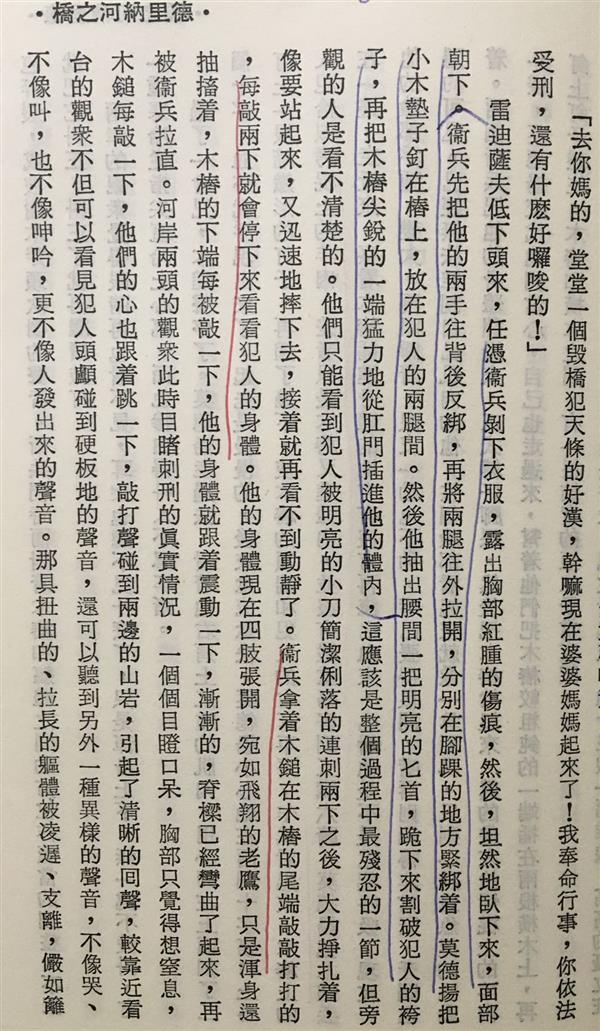 •德里納河之橋•
「去你媽的，堂堂一個毀橋犯天條的好漢，幹嘛現在婆婆媽媽起來了！我奉命行事，你依法
受刑，還有什麽好囉唆的！」
雷迪薩夫低下頭來，任憑衞兵剝下衣服，露出胸部紅腫的傷痕，然後，坦然地臥下來，面部
朝下。衞兵先把他的兩手往背後反綁，再將兩腿往外拉開，分別在腳踝的地方緊綁着。莫德揚把
小木墊子釘在樁上，放在犯人的兩腿間。然後他抽出腰間一把明亮的匕首，跪下來割破犯人的袴
子，再把木樁尖銳的一端猛力地從肛門插進他的體內，這應該是整個過程中最殘忍的一節，但旁
觀的人是看不清楚的。他們只能看到犯人被明亮的小刀簡潔俐落的連刺兩下之後，大力掙扎着，
像要站起來，又迅速地摔下去，接着就再看不到動靜了。衞兵拿着木鎚在木樁的尾端敲敲打打的
，每敲兩下就會停下來看看犯人的身體。他的身體現在四肢張開，宛如飛翔的老鷹，只是渾身還
抽搐着，木樁的下端每被敲一下，他的身體就跟着震動一下，漸漸的，脊樑已經彎曲了起來，再
被衞兵拉直。河岸兩頭的觀衆此時目睹刺刑的眞實情況，一個個目瞪口呆，胸部只覺得想窒息，
木鎚每敲一下，他們的心也跟着跳一下，敲打聲碰到兩邊的山岩，引起了清晰的囘聲，較靠近看
台的觀衆不但可以看見犯人頭顱碰到硬板地的聲音，還可以聽到另外一種異樣的聲音，不像哭、
不像叫，也不像呻吟，更不像人發出來的聲音。那具扭曲的、拉長的軀體被凌遲、支離，儼如籬